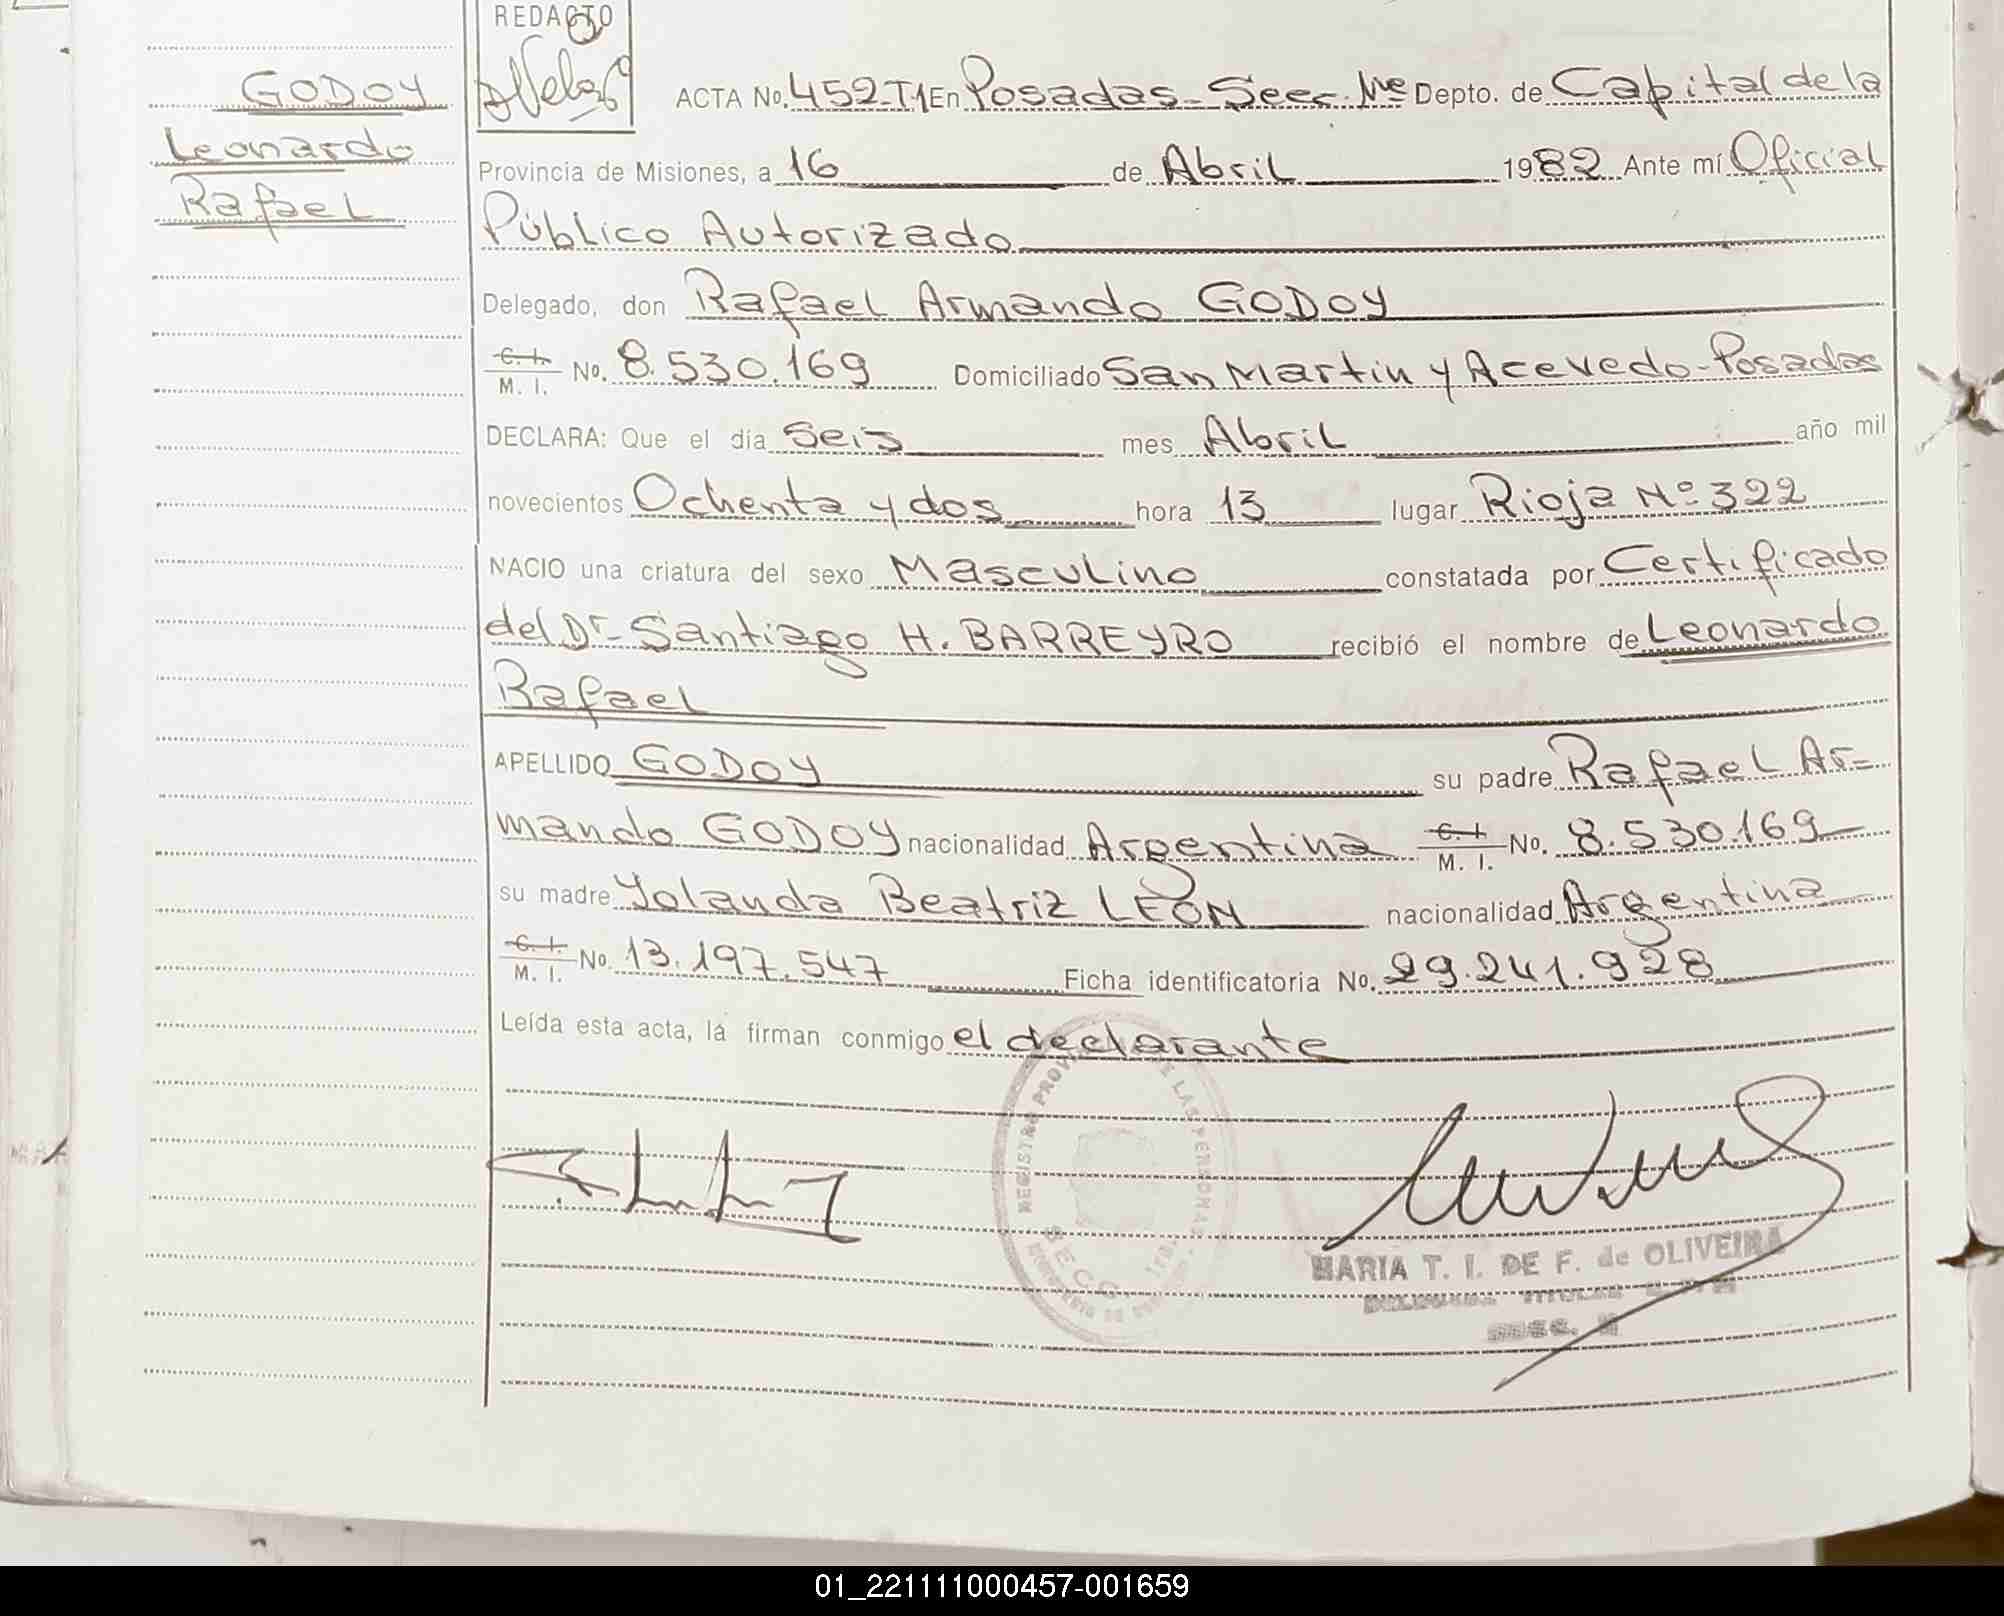 REDACTO
GODOY
Leonardo
Rafael
ACTA No. 452-T1 En Posadas - Secc. Depto. de Capital de la
Provincia de Misiones, a 16 de Abril 1982 Ante mí Oficial
Público Autorizado
Delegado, don Rafael Armando GODOY
C. I. M. I. No. 8.530.169 Domiciliado San Martin y Acevedo - Posadas
DECLARA: Que el día Seis mes Abril año mil
novecientos Ochenta y dos hora 13 lugar Rioja Nº 322
NACIO una criatura del sexo Masculino constatada por Certificado
del Dr. Santiago H. BARREYRO recibió el nombre de Leonardo
Rafael
APELLIDO GODOY su padre Rafael Ar-
mando GODOY nacionalidad Argentina C. I. M. I. No. 8.530.169
su madre Yolanda Beatriz LEÓN nacionalidad Argentina
C. I. M. I. No. 13.197.547 Ficha identificatoria No. 29.241.928
Leída esta acta, la firman conmigo el declarante
REGISTRO PROV DE LAS PERSONAS
SECC.
MARIA T. I. DE F. de OLIVEIRA
TITULAR
SECC.
01_221111000457-001659